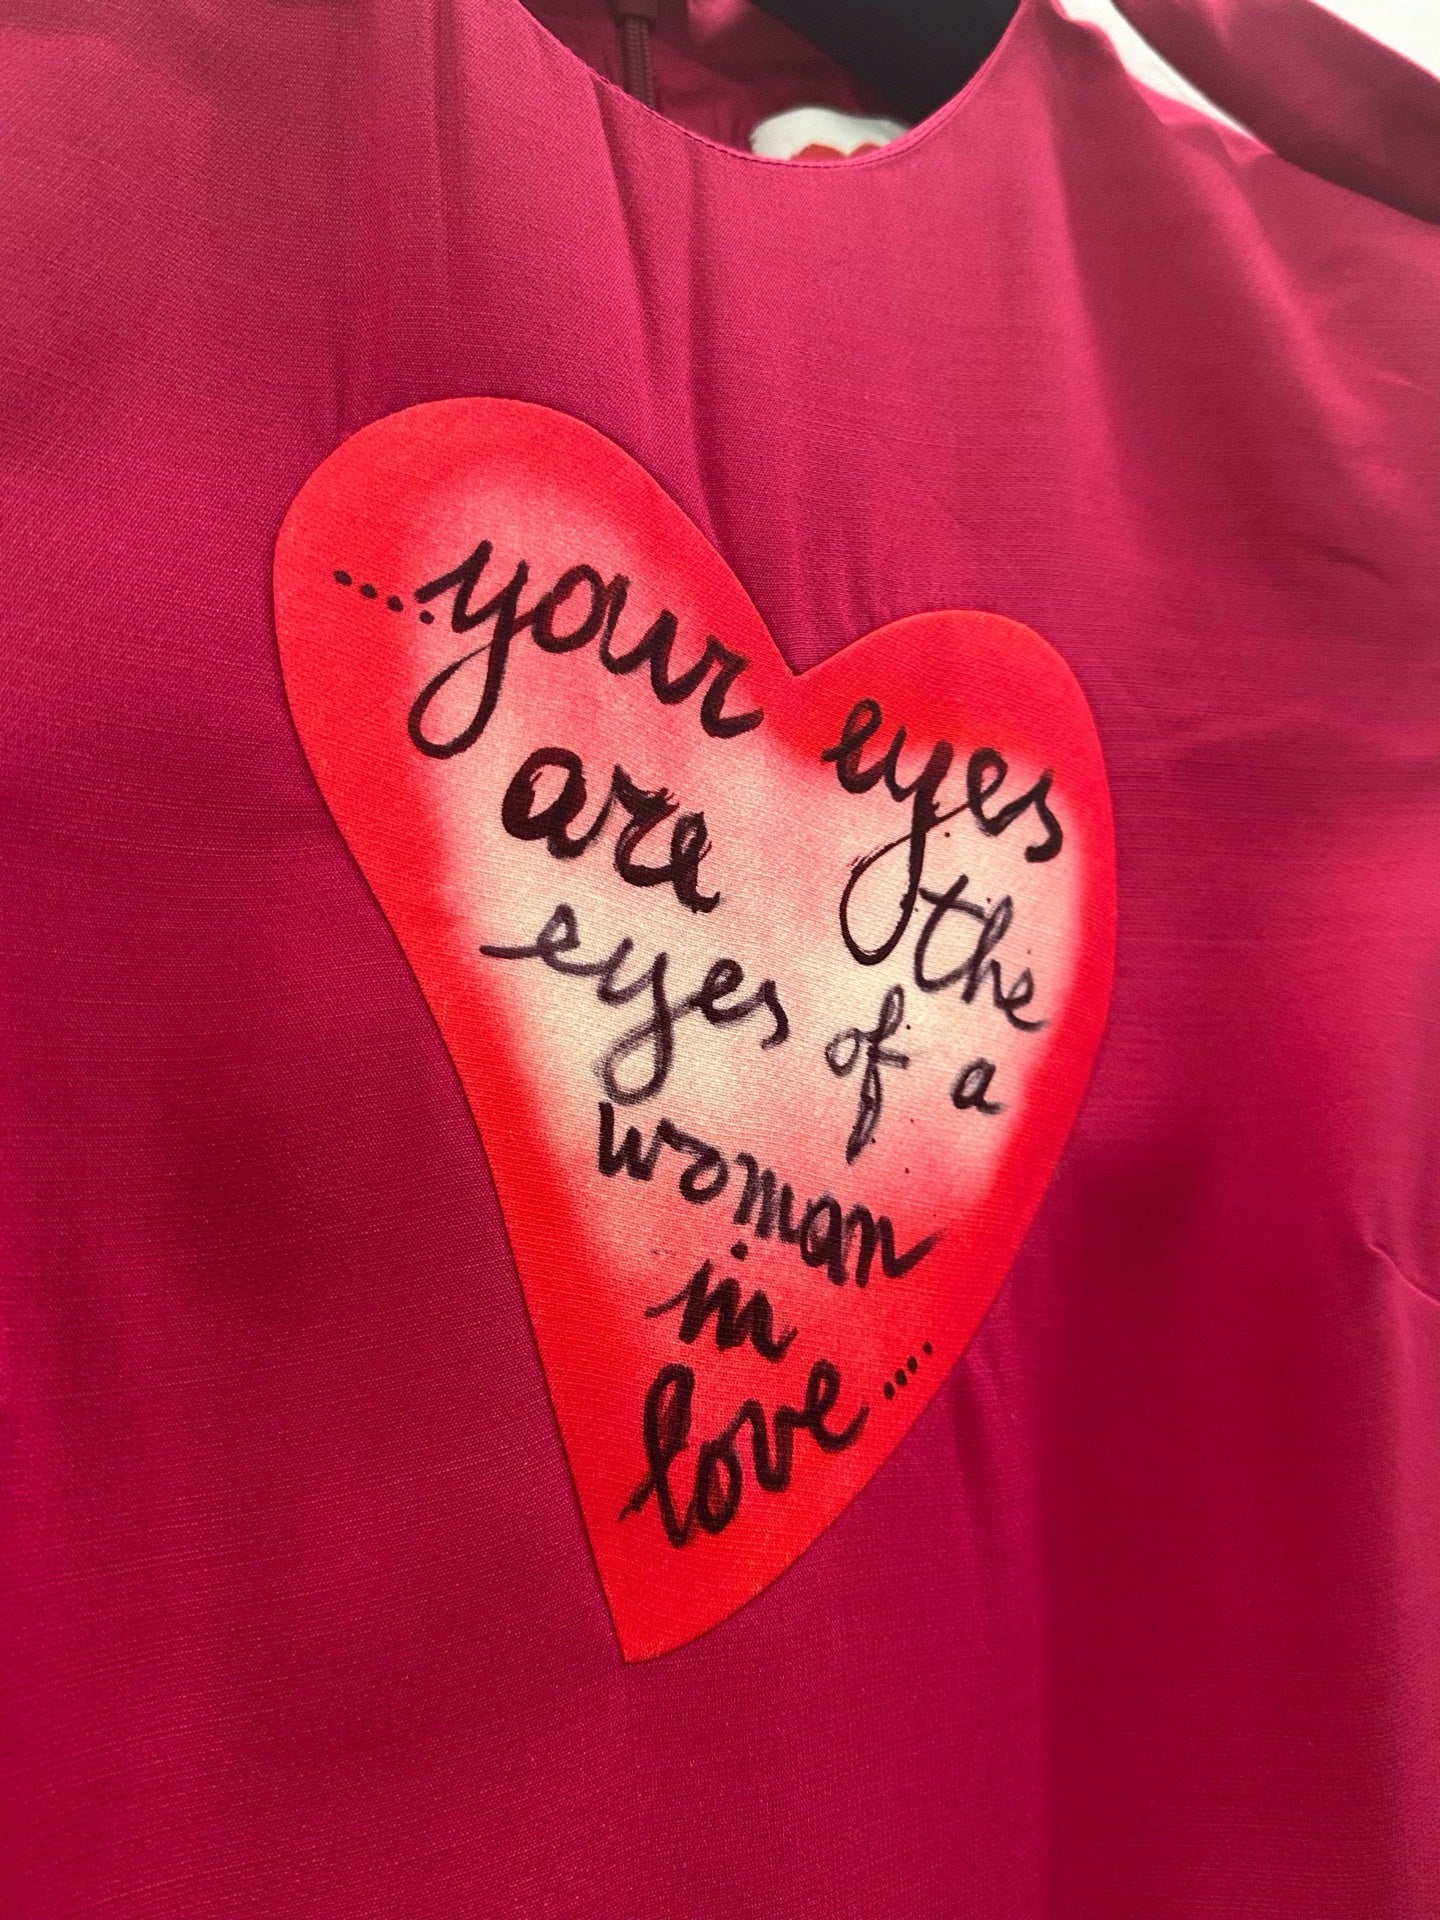 ....your eyes
are the
eyes of a
woman
in
love....